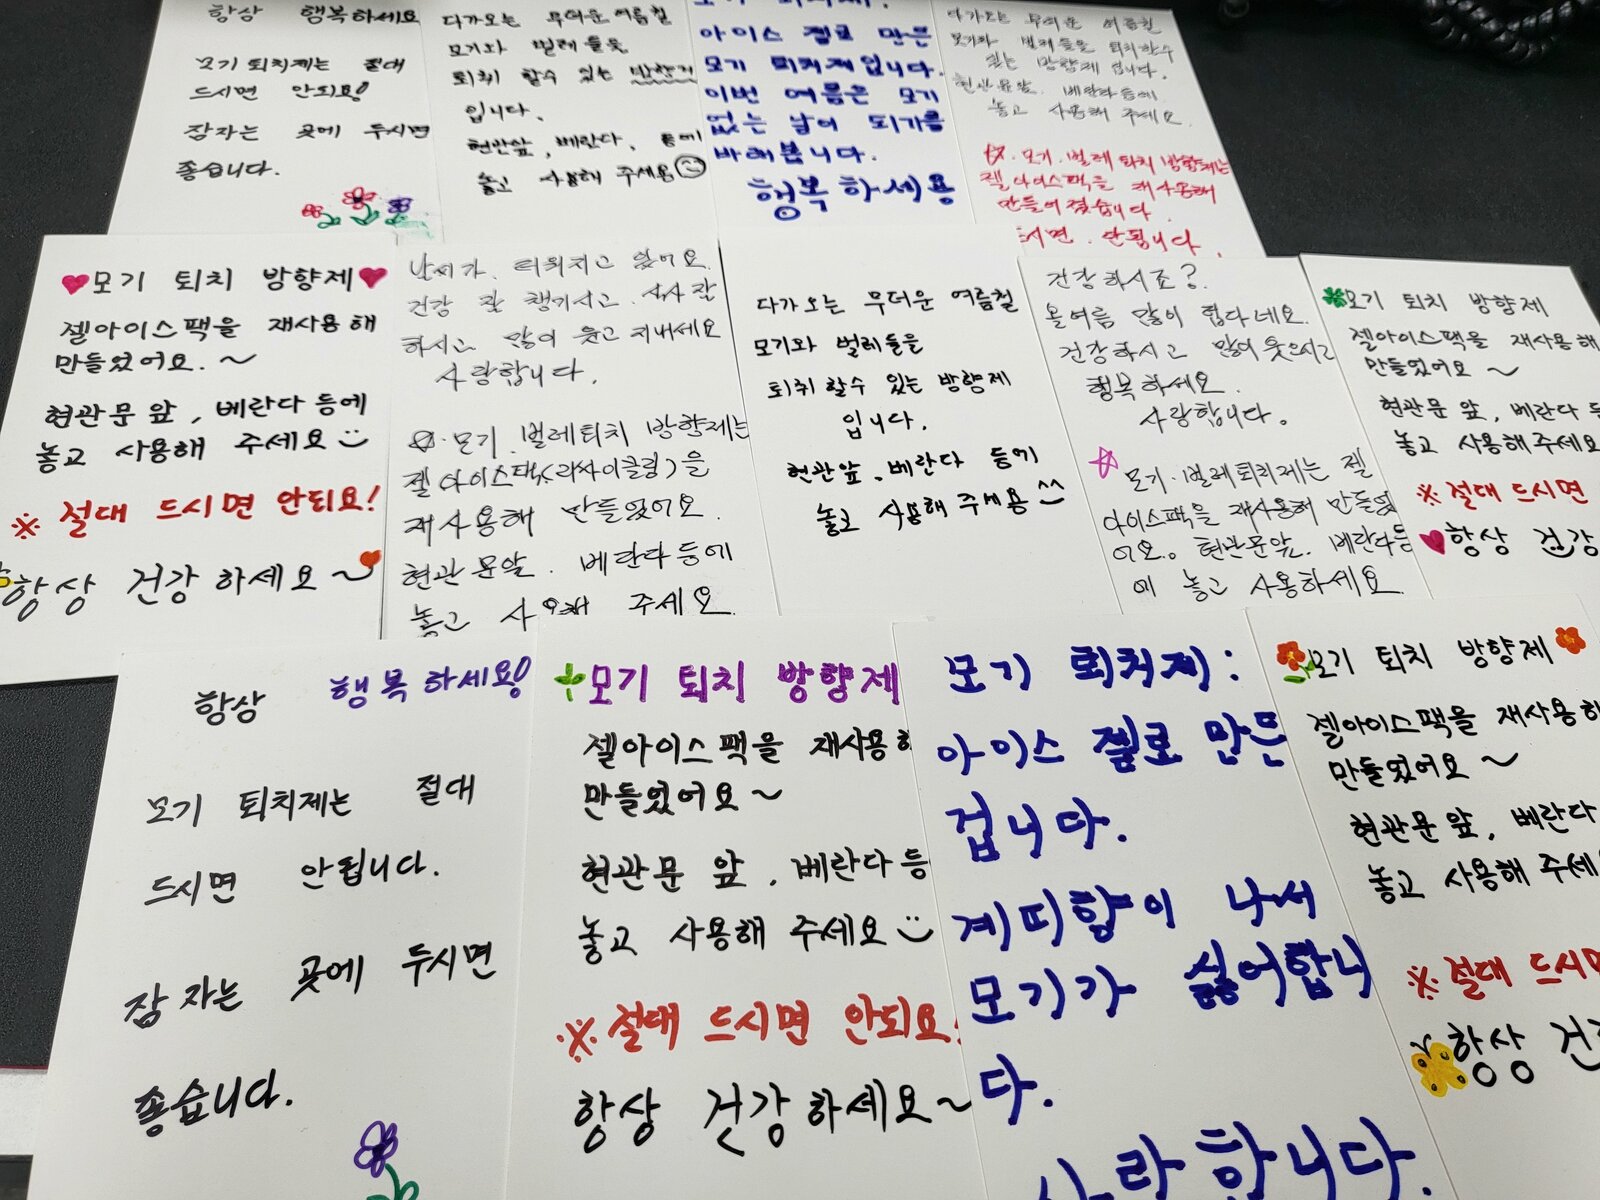 항상 행복하세요
모기 퇴치제는 절대
드시면 안되요!
잠자는 곳에 두시면
좋습니다.
다가오는 무더운 여름철
모기와 벌레들둣
퇴취 할수 있는 방향거
입니다.
현반앞, 베란다, 등에
놓고 사용해 주세용
아이스 젤로 만든
모기 퇴치제입니다.
이번 여름은 모기
없는 날이 되기를
바래봅니다.
행복하세용
다가오는 무더운 여름철
모기와 벌레들을 퇴치할수
있는 방향제 입니다.
현관문앞. 베란다등에
놓고 사용해 주세요.
☆. 모기. 벌레 퇴치 방향제는
젤아이스팩을 재사용해
만들어 졌습니다.
드시면. 안됩니다.
♥모기 퇴치 방향제♥
젤아이스팩을 재사용해
만들었어요.~
현관문 앞, 베란다 등에
놓고 사용해 주세요
※ 절대 드시면 안되요!
항상 건강하세요~
날씨가. 더워지고 있어요.
건강 잘 챙기시고. 식사 잘
하시고. 많이 웃고 지내세요
사랑합니다.
☆. 모기. 벌레퇴치 방향제는
젤 아이스팩(리싸이클링)을
재사용해 만들었어요.
현관문앞. 베란다등에
놓고 사용해 주세요.
다가오는 무더운 여름철
모기와 벌레들을
퇴취 할수 있는 방향제
입니다.
현관앞, 베란다 등에
놓고 사용해주세용^^
건강하시죠?
올여름 많이 덥다네요.
건강하시고 많이 웃으시고
행복하세요.
사랑합니다.
☆ 모기. 벌레퇴치제는 젤
아이스팩을 재사용해 만들었
어요. 현관문앞. 베란다등
에 놓고 사용하세요.
모기 퇴치 방향제
젤아이스팩을 재사용해
만들었어요~
현관문 앞, 베란다 등
놓고 사용해주세요
※ 절대 드시면
♥항상 건강
항상 행복하세요!
모기 퇴치제는 절대
드시면 안됩니다.
잠자는 곳에 두시면
좋습니다.
모기 퇴치 방향제
젤아이스팩을 재사용해
만들었어요~
현관문 앞, 베란다 등
놓고 사용해 주세요
※ 절대 드시면 안되요!
항상 건강하세요~
모기 퇴치제:
아이스 젤로 만든
겁니다.
계피향이 나서
모기가 싫어합니
다.
사랑합니다.
모기 퇴치 방향제
젤아이스팩을 재사용해
만들었어요~
현관문 앞, 베란다
놓고 사용해 주세
※ 절대 드시면
항상 건